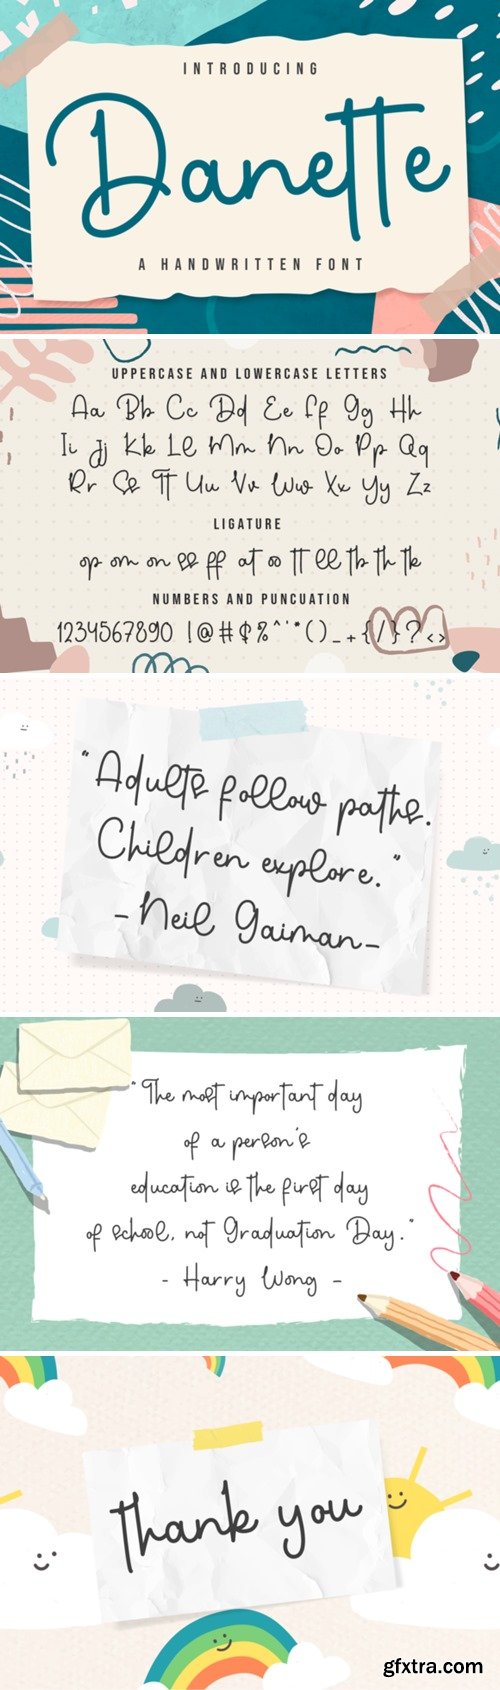 INTRODUCING
Danette
A HANDWRITTEN FONT
UPPERCASE AND LOWERCASE LETTERS
Aa Bb Cc Dd Ee Ff Gg Hh
Ii Jj Kk Ll Mm Nn Oo Pp Qq
Rr Ss Tt Uu Vv Ww Xx Yy Zz
LIGATURE
op om on ss ff at oo tt ll tb th tk
NUMBERS AND PUNCUATION
1234567890 !@#$%^'*()_+{/}?<>
"Adults follow paths.
Children explore."
-Neil Gaiman-
"The most important day
of a person's
education is the first day
of school, not Graduation Day."
- Harry Wong -
thank you
gfxtra.com